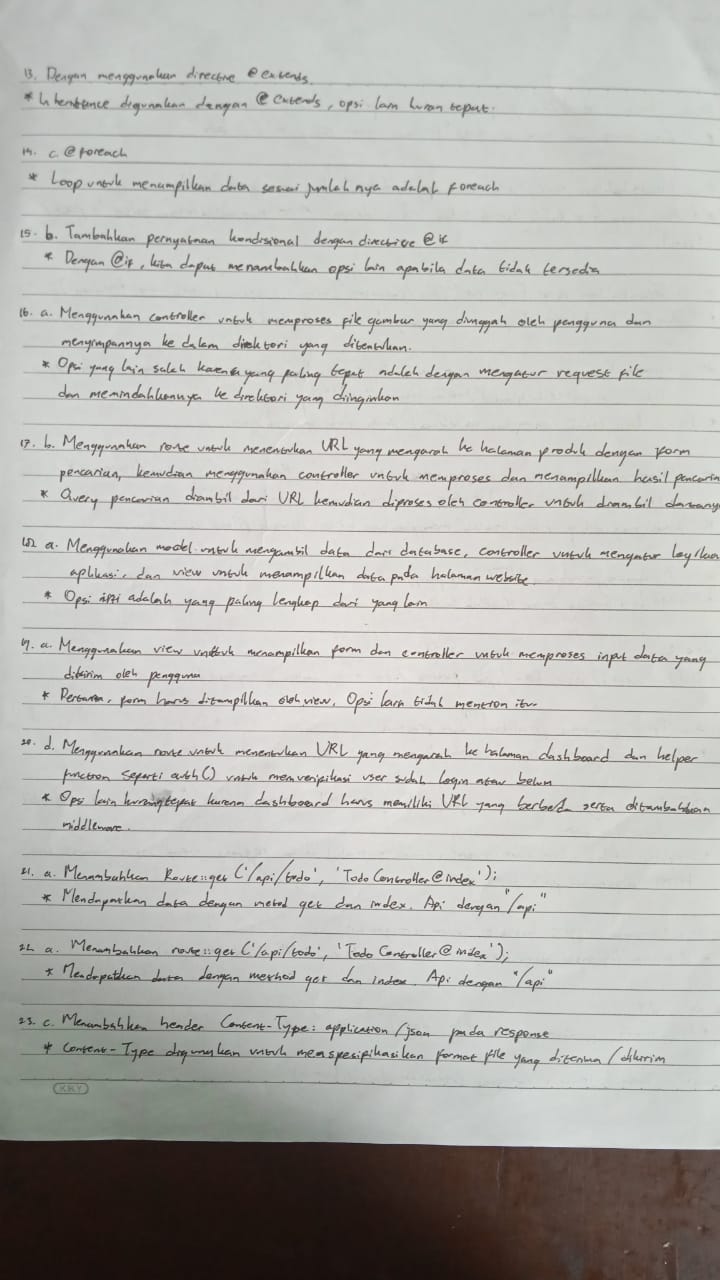 13. Dengan menggunakan directive @extends.
* Inheritence digunakan dengan @extends, opsi lain kuran teput.
14. c. @foreach
* Loop untuk menampilkan data sesuai jumlahnya adalah foreach
15. b. Tambahkan pernyataan kondisional dengan directive @if
* Dengan @if, kita dapat menambahkan opsi lain apabila data tidak tersedia
16. a. Menggunakan controller untuk memproses file gambar yang diunggah oleh pengguna dan
menyimpannya ke dalam direktori yang ditentukan.
* Opsi yang lain salah karena yang paling tepat adalah dengan mengatur request file
dan memindahkannya ke direktori yang diinginkan
17. b. Menggunakan route untuk menentukan URL yang mengarah ke halaman produk dengan form
pencarian, kemudian menggunakan controller untuk memproses dan menampilkan hasil pencarian
* Query pencarian diambil dari URL kemudian diproses oleh controller untuk diambil datanya
a. Menggunakan model untuk mengambil data dari database, controller untuk mengatur logika
aplikasi, dan view untuk menampilkan data pada halaman website.
* Opsi adalah yang paling lengkap dari yang lain
19. a. Menggunakan view untuk menampilkan form dan controller untuk memproses input data yang
dikirim oleh pengguna
* Pertama, form harus ditampilkan oleh view. Opsi lain tidak mention itu
20. d. Menggunakan route untuk menentukan URL yang mengarah ke halaman dashboard dan helper
function seperti auth() untuk memverifikasi user sudah login atau belum
* Opsi lain kurang tepat karena dashboard harus memiliki URL yang berbeda serta ditambahkan
middleware.
21. a. Menambahkan Route::get ('/api/todo', 'Todo Controller@index');
* Mendapatkan data dengan metod get dan index. Api dengan "/api"
22. a. Menambahkan route::get ('/api/todo', 'Todo Controller@index');
* Mendapatkan data dengan method get dan index. Api dengan "/api"
23. c. Menambahkan header Content-Type: application/json pada response
* Content-Type digunakan untuk menspesifikasikan format file yang diterima/dikirim
KKY